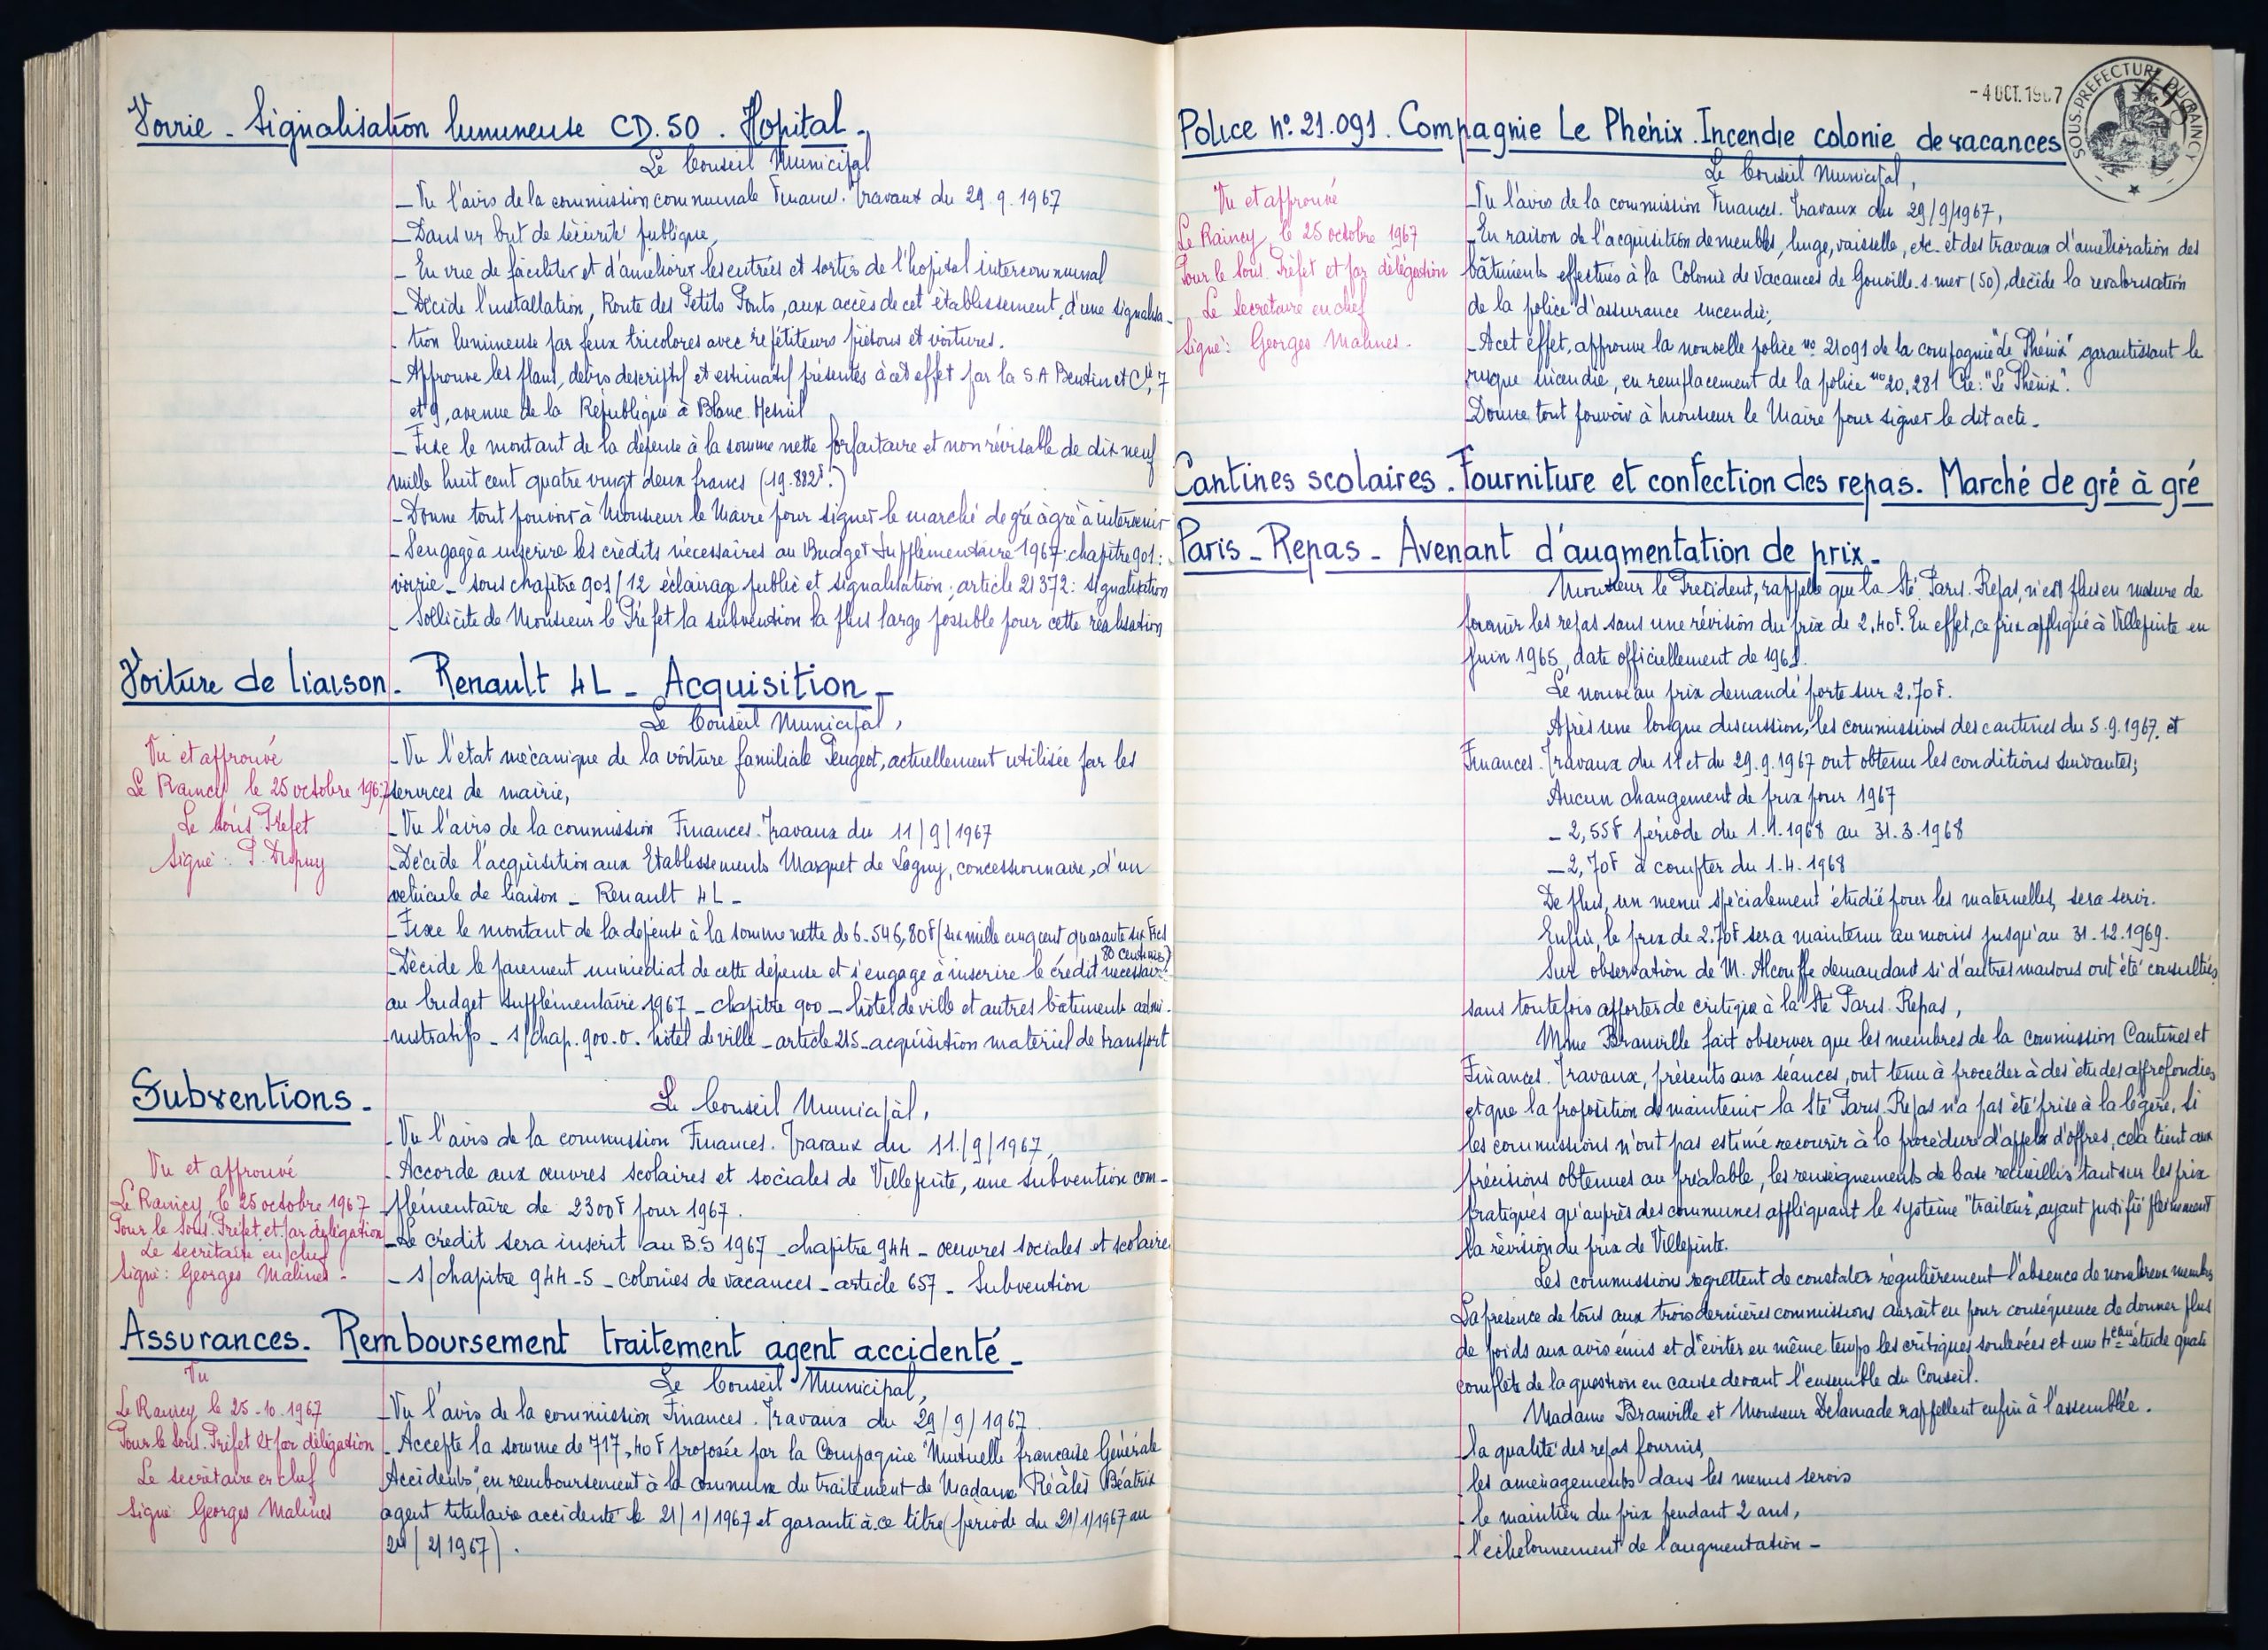 Voirie - Signalisation lumineuse CD.50. Hopital.
Le Conseil Municipal
- Vu l'avis de la commission communale Finances. Travaux du 29.9.1967
- Dans un but de sécurité publique,
- En vue de faciliter et d'améliorer les entrées et sorties de l'hopital intercommunal
- Décide l'installation, Route des Petits Ponts, aux accès de cet établissement, d'une signalisa-
tion lumineuse par feux tricolores avec répétiteurs piétons et voitures.
- Approuve les plans, devis descriptif et estimatif présentés à cet effet par la S A Beutin et Cie, 7
et 9, avenue de la République à Blanc Mesnil
- Fixe le montant de la dépense à la somme nette forfaitaire et non révisable de dix neuf
mille huit cent quatre vingt deux francs (19.882F.)
- Donne tout pouvoir à Monsieur le Maire pour signer le marché de gré à gré à intervenir
- S'engage à inscrire les crédits nécessaires au Budget Supplémentaire 1967. chapitre 901:
voirie - sous chapitre 901/12 éclairage public et signalisation; article 21372: signalisation
- Sollicite de Monsieur le Préfet la subvention la plus large possible pour cette réalisation
Voiture de liaison - Renault 4L - Acquisition -
Le Conseil Municipal,
Vu et approuvé
Le Raincy le 25 octobre 1967
Le Sous. Préfet
Signé: P. Dupuy
- Vu l'état mécanique de la voiture familiale Peugeot, actuellement utilisée par les
services de mairie,
- Vu l'avis de la commission Finances. Travaux du 11/9/1967
- Décide l'acquisition aux Etablissements Marquet de Lagny, concessionnaire, d'un
véhicule de liaison - Renault 4L -
- Fixe le montant de la dépense à la somme nette de 6.546,80F (six mille cinq cent quarante six Frcs
80 centimes)
- Décide le paiement immédiat de cette dépense et s'engage à inscrire le crédit nécessaire
au budget supplémentaire 1967 - chapitre 900 - hôtel de ville et autres bâtiments admi-
nistratifs - s/chap. 900.0. hôtel de ville - article 215 - acquisition matériel de transport
Subventions -
Le Conseil Municipal,
Vu et approuvé
Le Raincy, le 25 octobre 1967
Pour le Sous. Préfet et par délégation
Le secrétaire en chef
Signé: Georges Malines -
- Vu l'avis de la commission Finances. Travaux du 11/9/1967,
- Accorde aux œuvres scolaires et sociales de Villepinte, une subvention com-
plémentaire de 2300F pour 1967.
- Le crédit sera inscrit au B.S 1967 - chapitre 944 - oeuvres sociales et scolaires
- s/chapitre 944-5 - colonies de vacances - article 657 - Subvention
Assurances. Remboursement traitement agent accidenté -
Le Conseil Municipal,
Vu
Le Raincy le 25-10.1967
Pour le Sous. Préfet et par délégation
Le secrétaire en chef
Signé Georges Malines
- Vu l'avis de la commission Finances. Travaux du 29/9/1967.
- Accepte la somme de 717,40F proposée par la Compagnie "Mutuelle française Générale
Accidents", en remboursement à la commune du traitement de Madame Béatrix
agent titulaire accidenté le 21/1/1967 et garanti à ce titre (période du 21/1/1967 au
/2/1967).
- 4 OCT. 1967
SOUS-PREFECTURE DU RAINCY
Police n° 21.091. Compagnie Le Phénix. Incendie colonie de vacances
Le Conseil Municipal,
Vu et approuvé
Le Raincy, le 25 octobre 1967
Pour le Sous. Préfet et par délégation
Le Secrétaire en chef
Signé: Georges Malines -
- Vu l'avis de la commission Finances. Travaux du 29/9/1967,
- En raison de l'acquisition de meubles, linge, vaisselle, etc - et des travaux d'amélioration des
bâtiments effectués à la Colonie de Vacances de Gouville. s. mer (50), décide la revalorisation
de la police d'assurance incendie;
- A cet effet, approuve la nouvelle police n° 21091 de la compagnie "Le Phénix" garantissant le
risque incendie, en remplacement de la police n° 20.281 Cie: "Le Phénix".
Donne tout pouvoir à Monsieur le Maire pour signer le dit acte -
Cantines scolaires - Fourniture et confection des repas. Marché de gré à gré
Paris - Repas - Avenant d'augmentation de prix -
Monsieur le Président, rappelle que la Sté Paris. Repas, n'est plus en mesure de
fournir les repas sans une révision du prix de 2,40F. En effet, ce prix appliqué à Villepinte en
Juin 1965, date officiellement de .
Le nouveau prix demandé porte sur 2,70F.
Après une longue discussion, les commissions des cantines du 5.9.1967, et
Finances. Travaux du 11 et du 29.9.1967 ont obtenu les conditions suivantes;
Aucun changement de prix pour 1967
- 2,55F période du 1.1.1968 au 31.3.1968
- 2,70F à compter du 1.4.1968
De plus, un menu spécialement étudié pour les maternelles, sera servi.
Enfin, le prix de 2.70F sera maintenu au moins jusqu'au 31.12.1969.
Sur observation de M. Alcouffe demandant si d'autres maisons ont été consultées,
sans toutefois apporter de critique à la Sté Paris. Repas,
Mme Branville fait observer que les membres de la commission Cantines et
Finances. Travaux, présents aux séances, ont tenu à procéder à des études approfondies
et que la proposition de maintenir la Sté Paris. Repas n'a pas été prise à la légère, Si
les commissions n'ont pas estimé recourir à la procédure d'appels d'offres, cela tient aux
précisions obtenues au préalable, les renseignements de base recueillis tant sur les prix
pratiqués qu'auprès des communes appliquant le système "traiteur", ayant justifié pleinement
la révision du prix de Villepinte.
Les commissions regrettent de constater régulièrement l'absence de nombreux membres
La présence de tous aux trois dernières commissions aurait eu pour conséquence de donner plus
de poids aux avis émis et d'éviter en même temps les critiques soulevées et une étude
complète de la question en cause devant l'ensemble du Conseil.
Madame Branville et Monsieur Delamade rappellent enfin à l'assemblée.
- la qualité des repas fournis,
- les aménagements dans les menus servis
- le maintien du prix pendant 2 ans,
- l'échelonnement de l'augmentation -